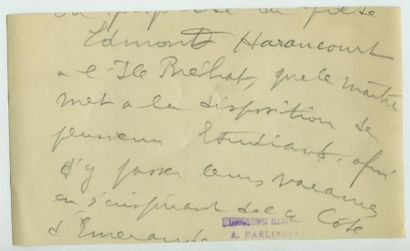 la propriété du poète
Edmond Haraucourt
a l'Ile Bréhat, que le maître
met a la disposition de
plusieurs Etudiants, afin
d'y passer leurs vacances
en s'inspirant de la Côte
d'Emeraude
A. HARLINGUE